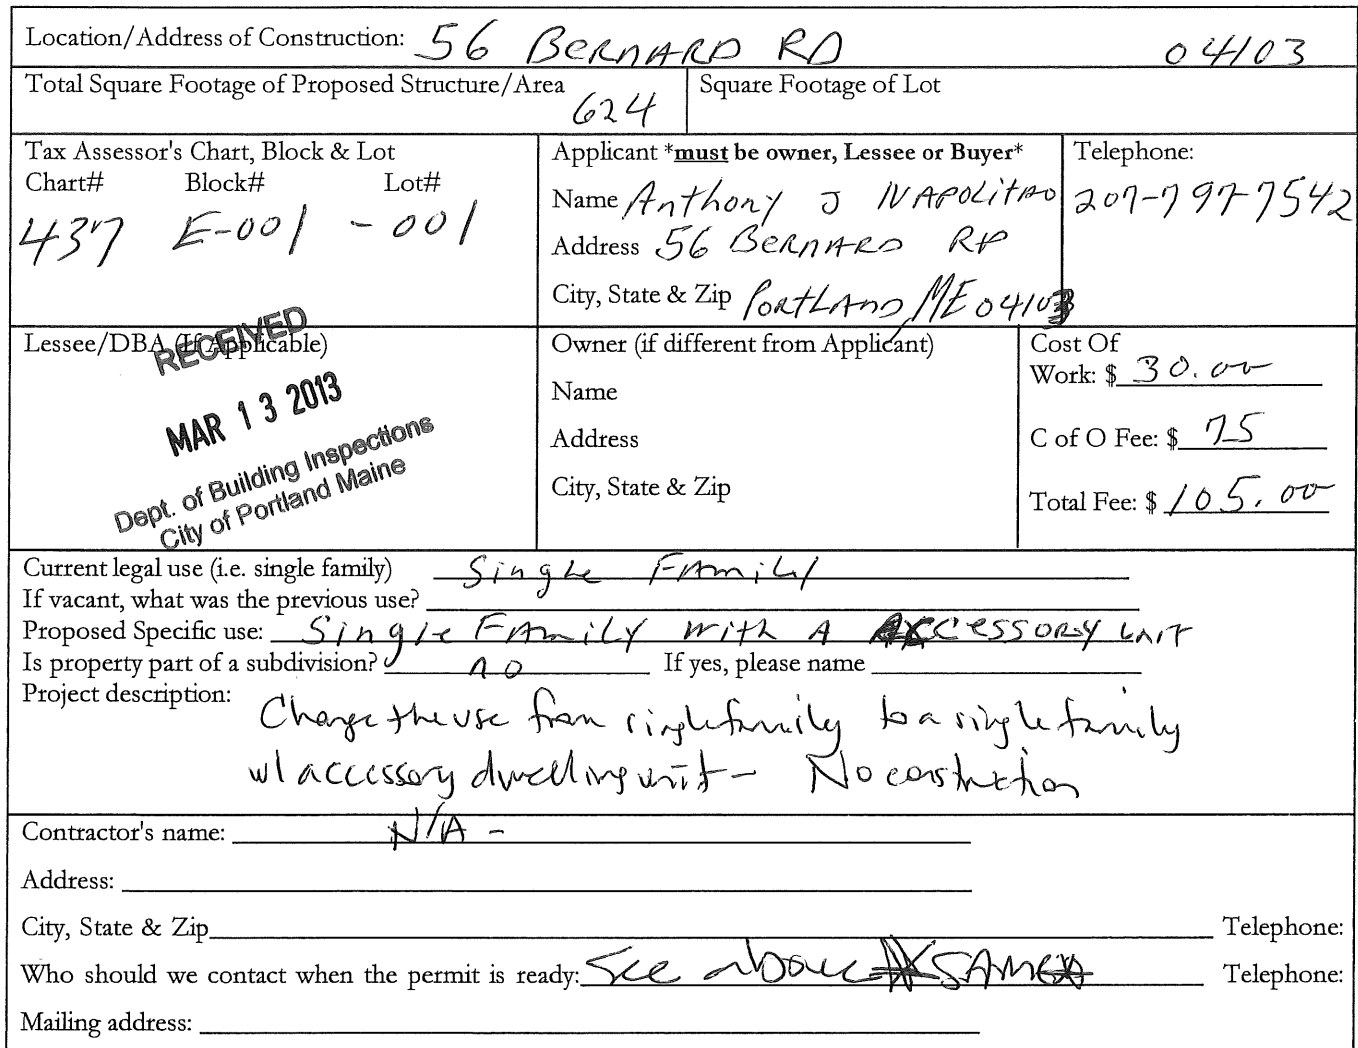 Location/Address of Construction: 56 BERNARD RD 04103
Total Square Footage of Proposed Structure/Area 624
Square Footage of Lot
Tax Assessor's Chart, Block & Lot
Chart# Block# Lot#
437 E-001 -001
Applicant *must be owner, Lessee or Buyer*
Name Anthony J NAPOLITAO
Address 56 BERNARD RD
City, State & Zip PORTLAND, ME 04103
Telephone:
207-797-7542
Lessee/DBA (If Applicable)
RECEIVED
MAR 13 2013
Dept. of Building Inspections
City of Portland Maine
Owner (if different from Applicant)
Name
Address
City, State & Zip
Cost Of
Work: $ 30.00
C of O Fee: $ 75
Total Fee: $ 105.00
Current legal use (i.e. single family) Single FAmily
If vacant, what was the previous use?
Proposed Specific use: Single FAmiLY WITH A ACCESSORY UNIT
Is property part of a subdivision? NO If yes, please name
Project description:
Change the use from single family to a single family
w/ accessory dwelling unit - No construction
Contractor's name: N/A -
Address:
City, State & Zip Telephone:
Who should we contact when the permit is ready: See above SAME Telephone:
Mailing address: